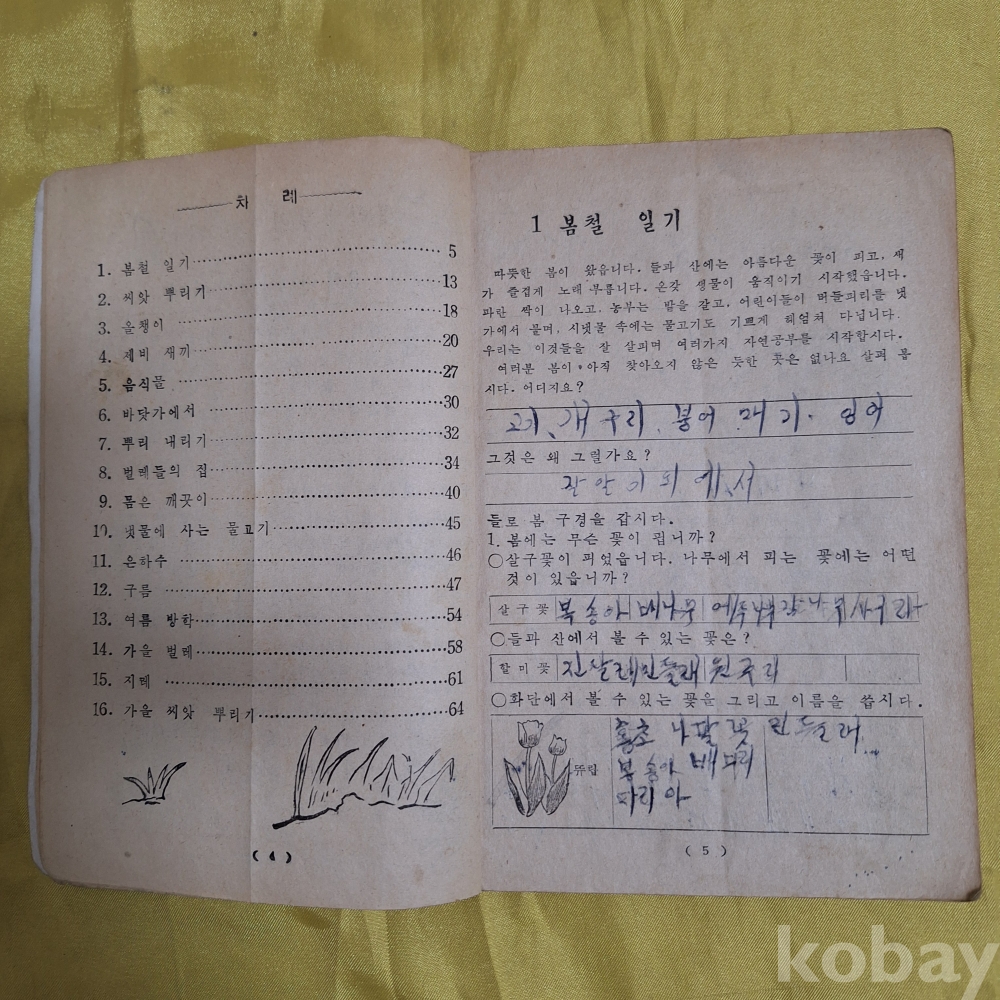 차 레
1. 봄철 일기 5
2. 씨앗 뿌리기 13
3. 올챙이 18
4. 제비 새끼 20
5. 음식물 27
6. 바닷가에서 30
7. 뿌리 내리기 32
8. 벌레들의 집 34
9. 몸은 깨끗이 40
10. 냇물에 사는 물고기 45
11. 은하수 46
12. 구름 47
13. 여름 방학 54
14. 가을 벌레 58
15. 지레 61
16. 가을 씨앗 뿌리기 64
( 4 )
1 봄철 일기
따뜻한 봄이 왔읍니다. 들과 산에는 아름다운 꽃이 피고, 새
가 즐겁게 노래 부릅니다. 온갖 생물이 움직이기 시작했읍니다.
파란 싹이 나오고, 농부는 밭을 갈고, 어린이들이 버들피리를 냇
가에서 불며, 시냇물 속에는 물고기도 기쁘게 헤엄쳐 다닙니다.
우리는 이것들을 잘 살피며 여러가지 자연공부를 시작합시다.
여러분 봄이 아직 찾아오지 않은 듯한 곳은 없나요 살펴 봅
시다. 어디지요?
개구리 붕어 메기
그것은 왜 그럴가요?
들로 봄 구경을 갑시다.
1. 봄에는 무슨 꽃이 핍니까?
○살구꽃이 피었읍니다. 나무에서 피는 꽃에는 어떤
것이 있읍니까?
살구꽃 복송아 배나무
○들과 산에서 볼 수 있는 꽃은?
할미꽃 진달래 민들래
○화단에서 볼 수 있는 꽃을 그리고 이름을 씁시다.
홍초 나팔꽃 민들래
뜌립 복송아
다리아
( 5 )
kobay